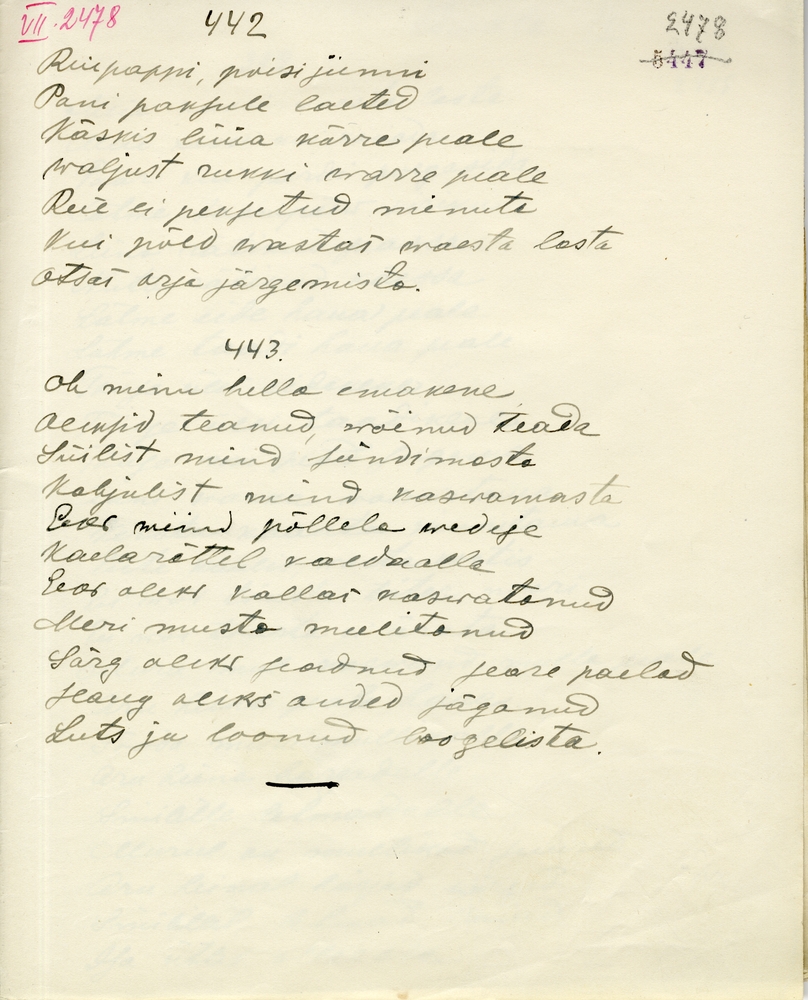 VII. 2478 442 2478
5447
Riiupappi, poisi jünni
Pani paksule laeted
Käskis lüüa kärre peale
waljust rukki warre peale
Reie ei peksetud minuta
Kui põld wastas waesta lasta
otsas orja järgemista.
443.
Oh minu hella emakene
Oleksid teanud, wõinud teada
Süilist mind sündimasta
Kahjulist mind kaswamasta
Eeas miind põllele wedije
Kaelarättel kaldaalla
Eeas oleks kallas kaswatanud
Meri musta meelitanud
Särg oleks seadnud seare paelad
Haug oleks anded jäganud
Luts ju loonud loogelista.